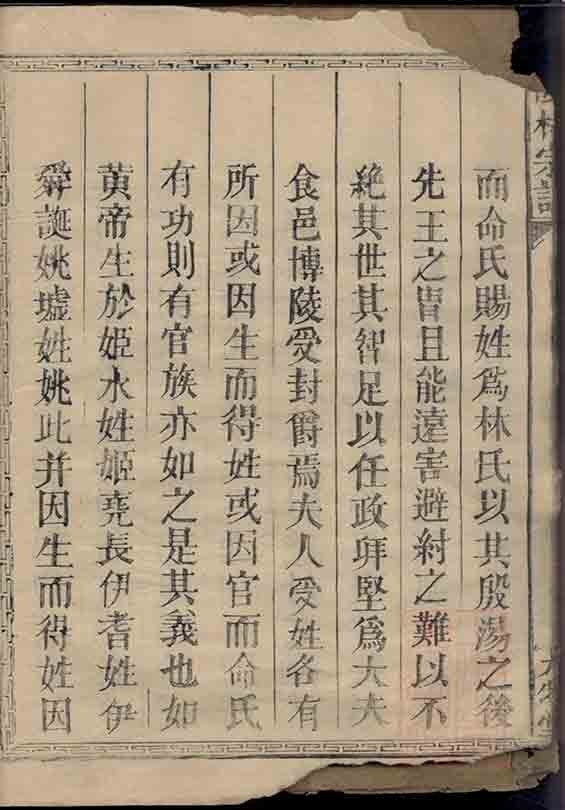 林宗譜
而命氏賜姓爲林氏以其殷湯之後
先王之胄且能遠害避紂之難以不
絶其世其智足以任政拜堅爲大夫
食邑博陵受封爵焉夫人受姓各有
所因或因生而得姓或因官而命氏
有功則有官族亦如之是其義也如
黄帝生於姬水姓姬堯長伊耆姓伊
舜誕姚墟姓姚此并因生而得姓因